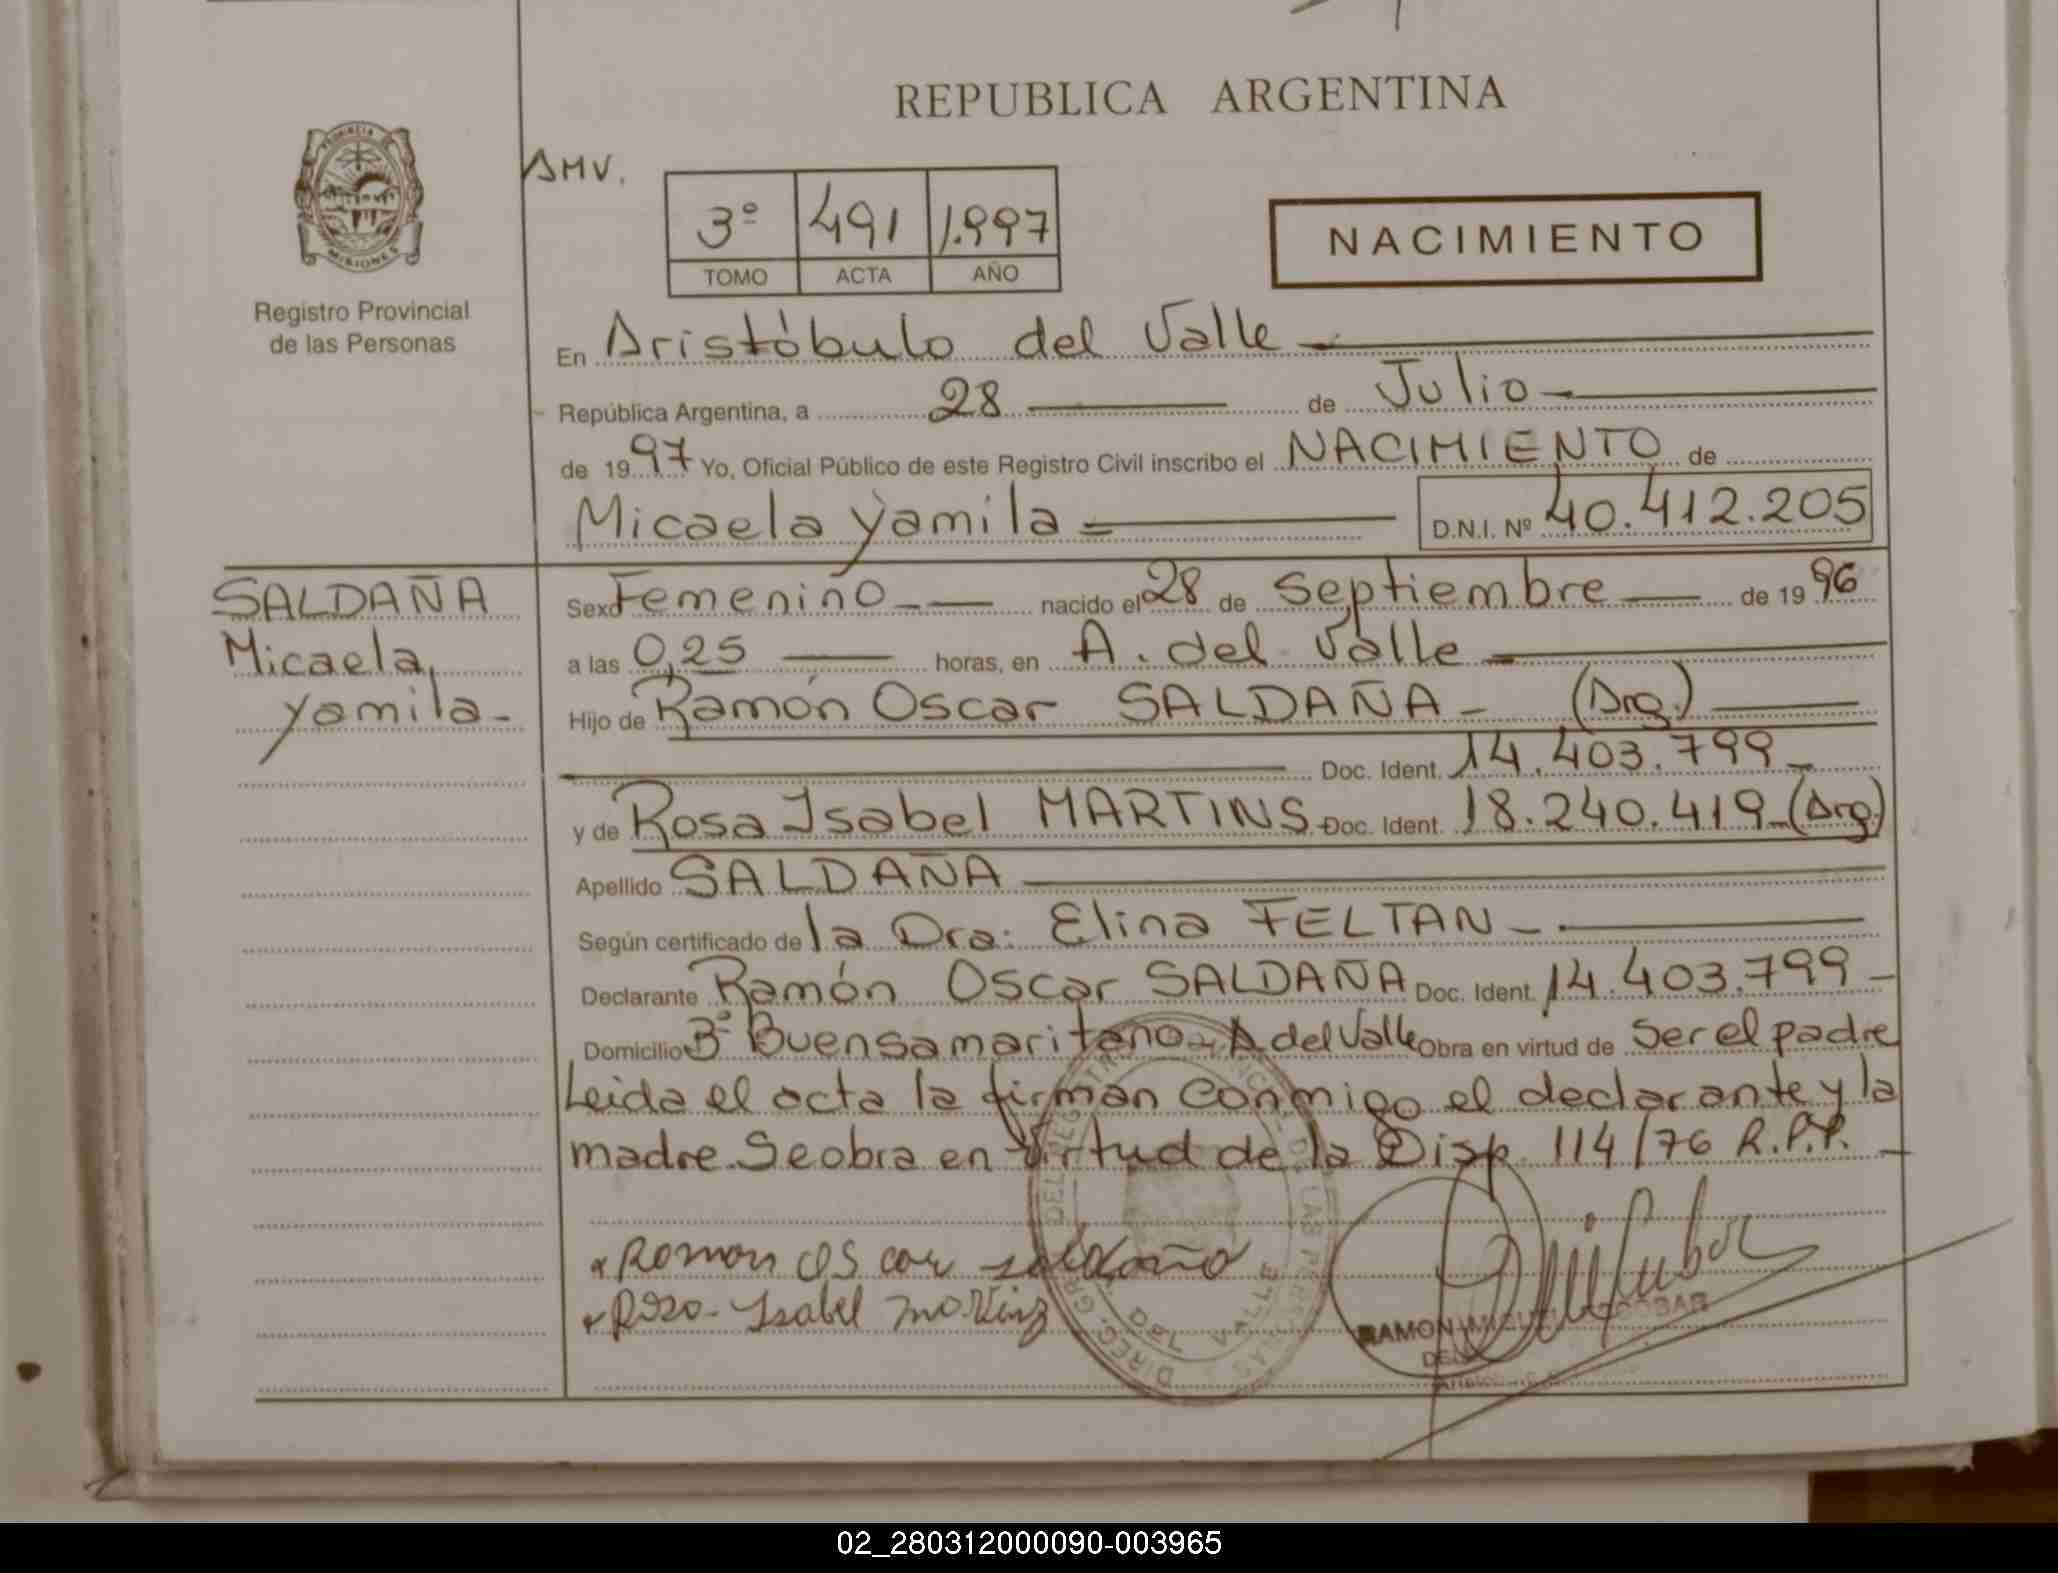 REPUBLICA ARGENTINA
PROVINCIA
MISIONES
Registro Provincial
de las Personas
AMV.
3º 491 1.997
TOMO ACTA AÑO
NACIMIENTO
En Aristóbulo del Valle
República Argentina, a 28 de Julio
de 1997 Yo, Oficial Público de este Registro Civil inscribo el NACIMIENTO de
Micaela Yamila D.N.I. Nº 40.412.205
SALDAÑA
Micaela
Yamila-
Sexo Femenino nacido el 28 de Septiembre de 1996
a las 0,25 horas, en A. del Valle
Hijo de Ramón Oscar SALDAÑA - (Arg.)
Doc. Ident. 14.403.799-
y de Rosa Isabel MARTINS- Doc. Ident. 18.240.419-(Arg.)
Apellido SALDAÑA
Según certificado de la Dra. Elina FELTAN-
Declarante Ramón Oscar SALDAÑA Doc. Ident. 14.403.799-
Domicilio Bº Buensamaritano- A del Valle Obra en virtud de Ser el padre
Leida el acta la firman conmigo el declarante y la
madre. Se obra en virtud de la Disp. 114/76 R.P.P.
Ramon Oscar saldaño
Rosa Isabel Martinz
DEL VALLE
RAMON MIGUEL ESCOBAR
02_280312000090-003965